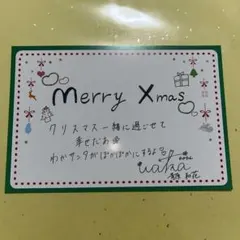 Merry Xmas
クリスマス一緒に過ごせて
幸せだね
わかサンタがぽかぽかにするよ
waka